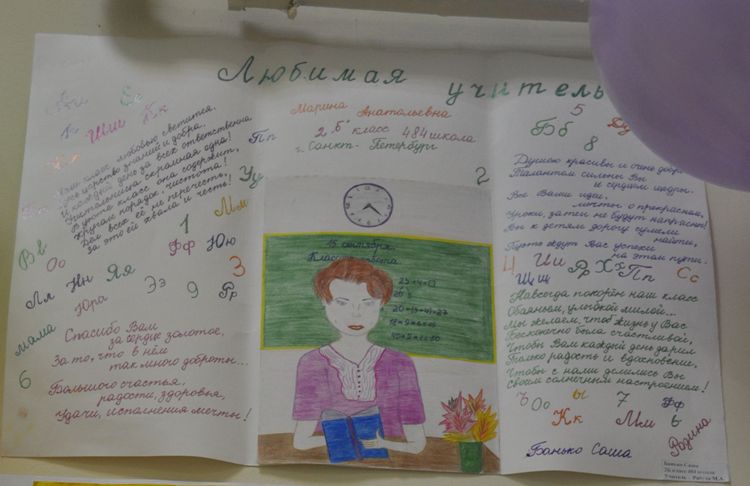 Любимая учитель
Марина Анатольевна
2 "б" класс 484 школа
г. Санкт-Петербург
Кк
Ши
Пп
Наш класс любовью светится,
царство знаний и добра.
И каждый день за всех ответственна
Учительница скромная одна!
В уюте класс она содержит,
Кругом порядок, чистота!
Дел всех её не перечесть,
За это ей хвала и честь!
Вв
Оо
1
Мм
Фф
Юю
Лл
Нн
Яя
Юра
Ээ
9
3
Рр
мама
6
Спасибо Вам
за сердце золотое,
За то, что в нём
так много доброты...
Большого счастья,
радости, здоровья,
Удачи, исполнения мечты!
15 сентября.
Классная работа
5
Бб
8
2
Душою красивы и очень добры
Талантом сильны Вы
и сердцем щедры.
Все Ваши идеи,
мечты о прекрасном,
Уроки, затеи не будут напрасны!
Вы к детям дорогу сумели
найти,
Пусть ждут Вас успехи
на этом пути.
Ч
Ии
Щщ
Рр
Хх
Пп
Сс
Навсегда покорён наш класс
Обаяньем, улыбкой милой...
Мы желаем, чтоб жизнь у Вас
Бесконечно была счастливой,
Чтобы Вам каждый день дарил
Только радость и вдохновение,
Чтобы с нами делились Вы
Своим солнечным настроением!
Ъ
Оо
ы
7
Фф
Кк
Мм
ь
Родина
Банько Саша
Банько Саша
2б класс 484 школа